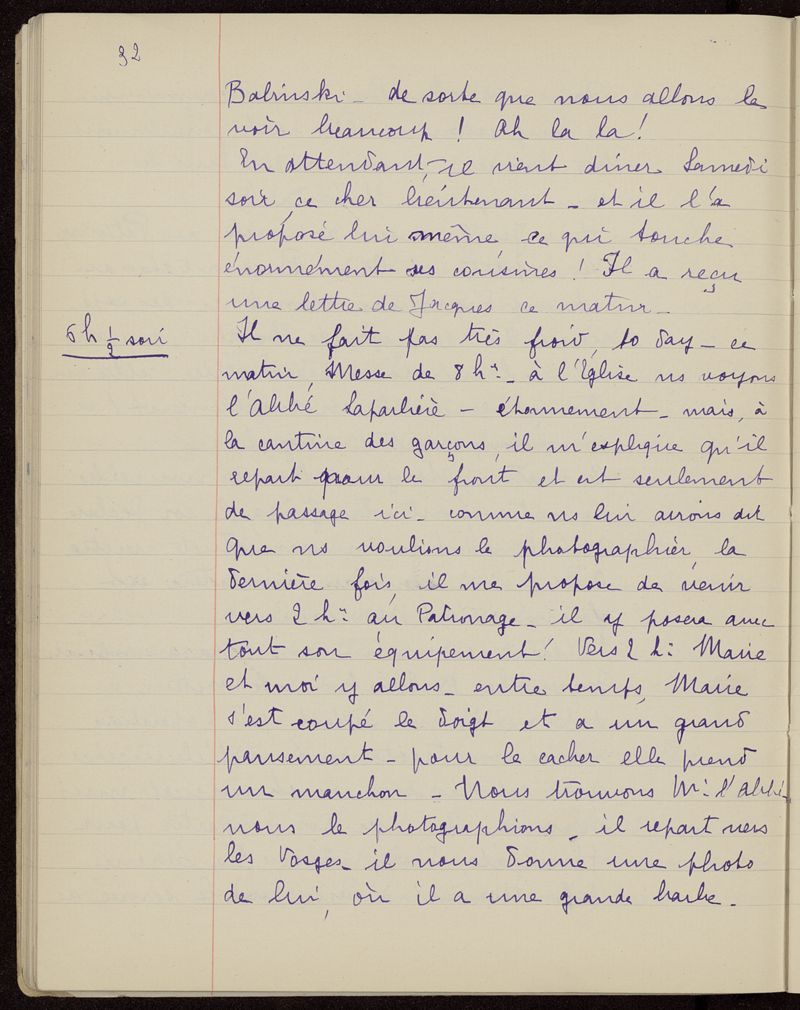 32
Balinski - de sorte que nous allons le
voir beaucoup ! Ah la la !
En attendant, il vient dîner Samedi
soir, ce cher lieutenant - et il l'a
proposé lui même, ce qui touche
énormément ses cousines ! Il a reçu
une lettre de Jacques ce matin -
6 h 1/2 soir
Il ne fait pas très froid, to day - ce
matin, Messe de 8 hes - à l'Eglise ns voyons
l'Abbé - étonnement - mais, à
la cantine des garçons, il m'explique qu'il
repart pour le front et est seulement
de passage ici - comme ns lui avions dit
que ns voulions le photographier, la
dernière fois, il me propose de venir
vers 2 hes au Patronage - il y posera avec
tout son équipement ! Vers 2 h: Marie
et moi y allons - entre temps, Marie
s'est coupé le doigt et a un grand
pansement - pour le cacher elle prend
un manchon - Nous trouvons Mr l'Abbé -
nous le photographions - il repart vers
les Vosges - il nous donne une photo
de lui, où il a une grande barbe -